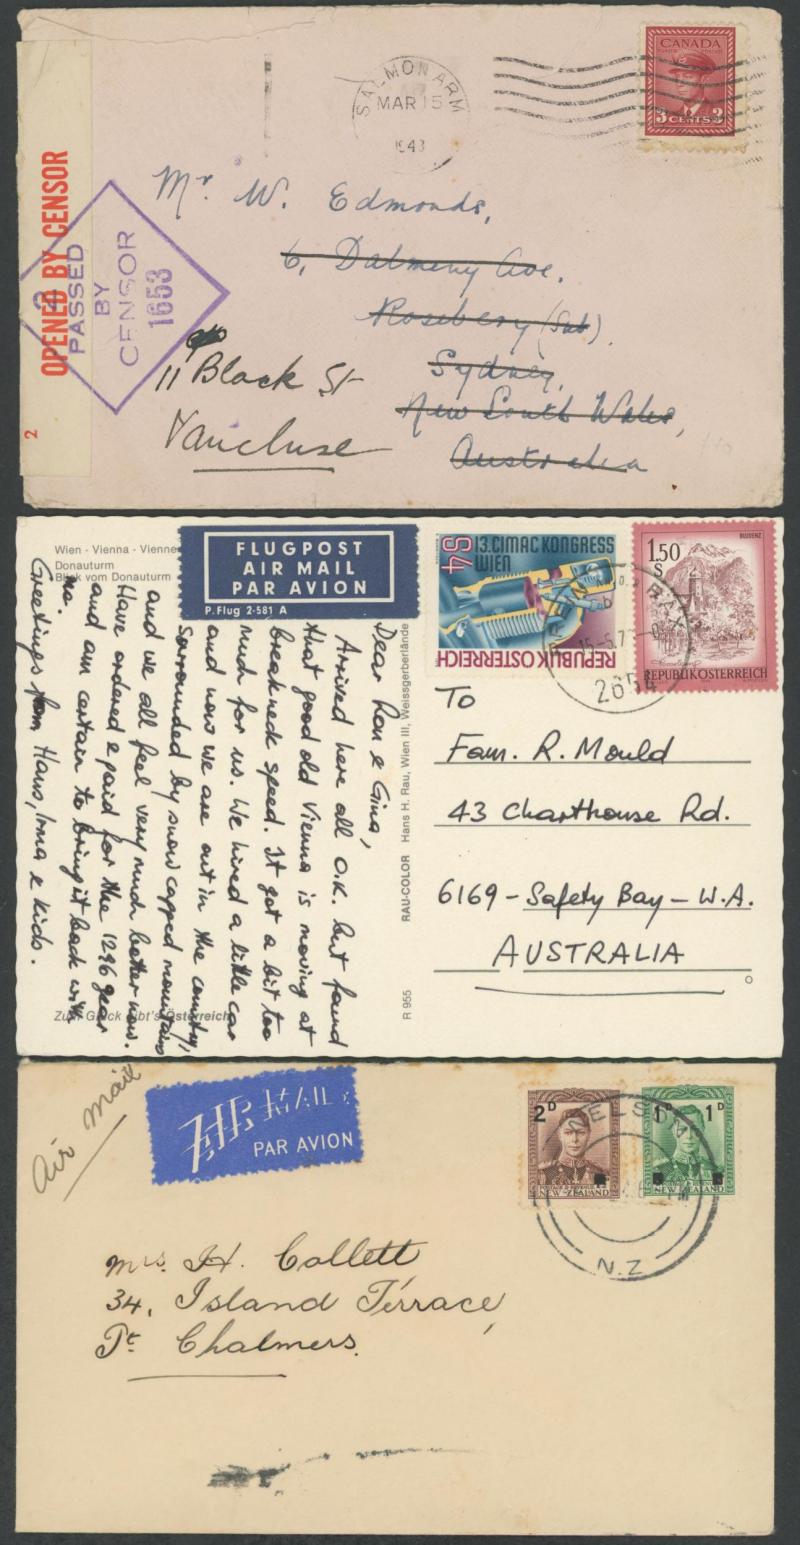 SALMON ARM
MAR 15
1943
CANADA
3 CENTS 3
OPENED BY CENSOR
2
PASSED
BY
CENSOR
1653
2
Mr. W. Edmonds,
6, Dalmeny Ave.
Rosebery (Sub).
Sydney,
New South Wales,
Australia
11 Black St
Vaucluse
Wien · Vienna · Vienne
Donauturm
Blick vom Donauturm
FLUGPOST
AIR MAIL
PAR AVION
P. Flug 2-581 A
S4
13. CIMAC KONGRESS
WIEN
REPUBLIK ÖSTERREICH
1.50
S
BLUDENZ
REPUBLIK ÖSTERREICH
2654
Dear Ron & Gina,
Arrived here all O.K. but found
that good old Vienna is moving at
break neck speed. It got a bit too
much for us. We hired a little car
and now we are out in the country,
sorrounded by snow capped mountains
and we all feel very much better now.
Have ordered & paid for the 1296 gear
and am certain to bring it back with
me.
Greetings from Hans, Irma & kids.
Zum Glück gibt's Österreich
R 955 RAU-COLOR Hans H. Rau, Wien III, Weissgerberlände
To
Fam. R. Mould
43 Charthouse Rd.
6169 - Safety Bay - W.A.
AUSTRALIA
Air Mail
AIR MAIL
PAR AVION
2D
NEW ZEALAND
1D 1D
NEW ZEALAND
NELSON
N.Z
Mrs. H. Collett
34, Island Terrace,
Pt Chalmers.